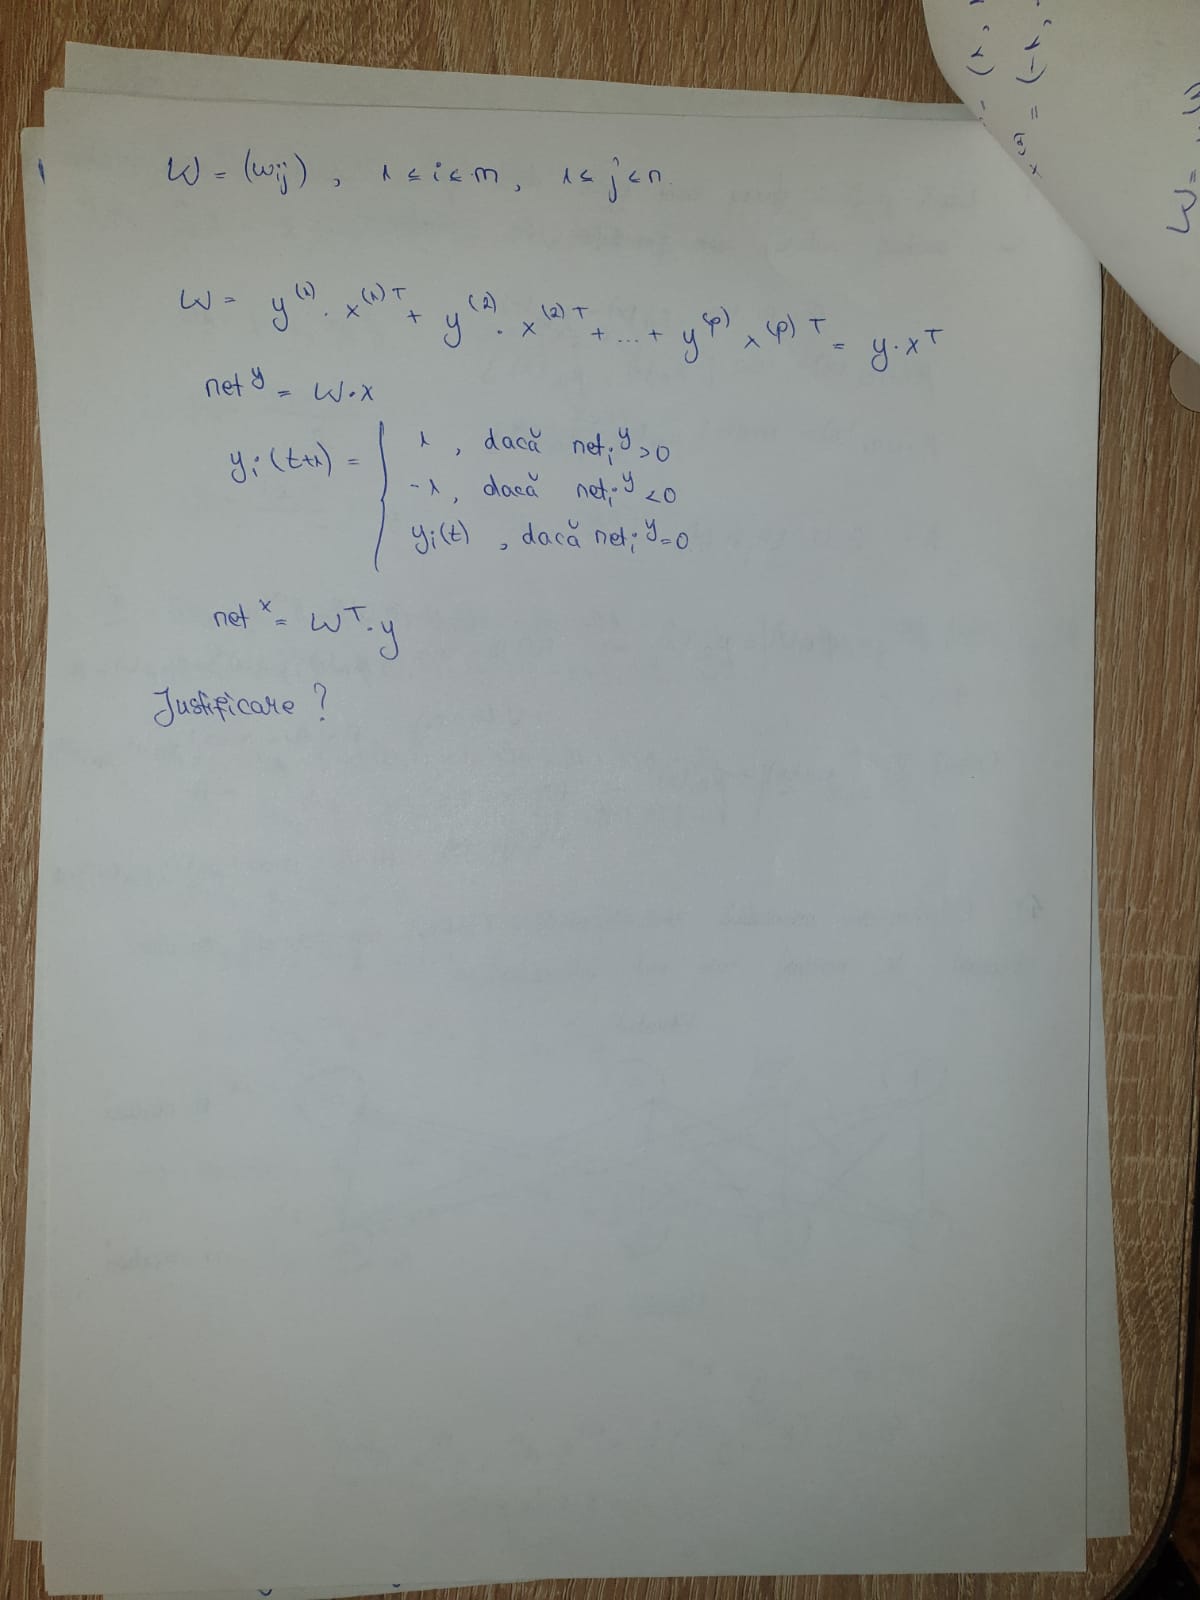 W = (wij) , 1 ≤ i ≤ m , 1 ≤ j ≤ n
W = y^(1) · x^(1)T + y^(2) · x^(2)T + ... + y^(p) x^(p)T = y · x^T
net^y = W · x
yi(t+1) = { 1 , dacă neti^y > 0
-1 , dacă neti^y < 0
yi(t) , dacă neti^y = 0
net^x = W^T · y
Justificare ?